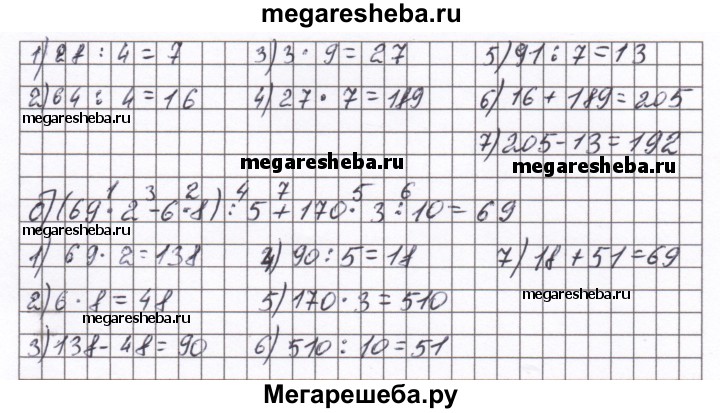 megaresheba.ru
1) 28 : 4 = 7 3) 3 · 9 = 27 5) 91 : 7 = 13
2) 64 : 4 = 16 4) 27 · 7 = 189 6) 16 + 189 = 205
megaresheba.ru
7) 205 - 13 = 192
megaresheba.ru megaresheba.ru
1 3 2 4 7 5 6
б) (69 · 2 - 6 · 8) : 5 + 170 · 3 : 10 = 69
megaresheba.ru
1) 69 · 2 = 138 4) 90 : 5 = 18 7) 18 + 51 = 69
megaresheba.ru
2) 6 · 8 = 48 5) 170 · 3 = 510
megaresheba.ru
3) 138 - 48 = 90 6) 510 : 10 = 51
Мегарешеба.ру